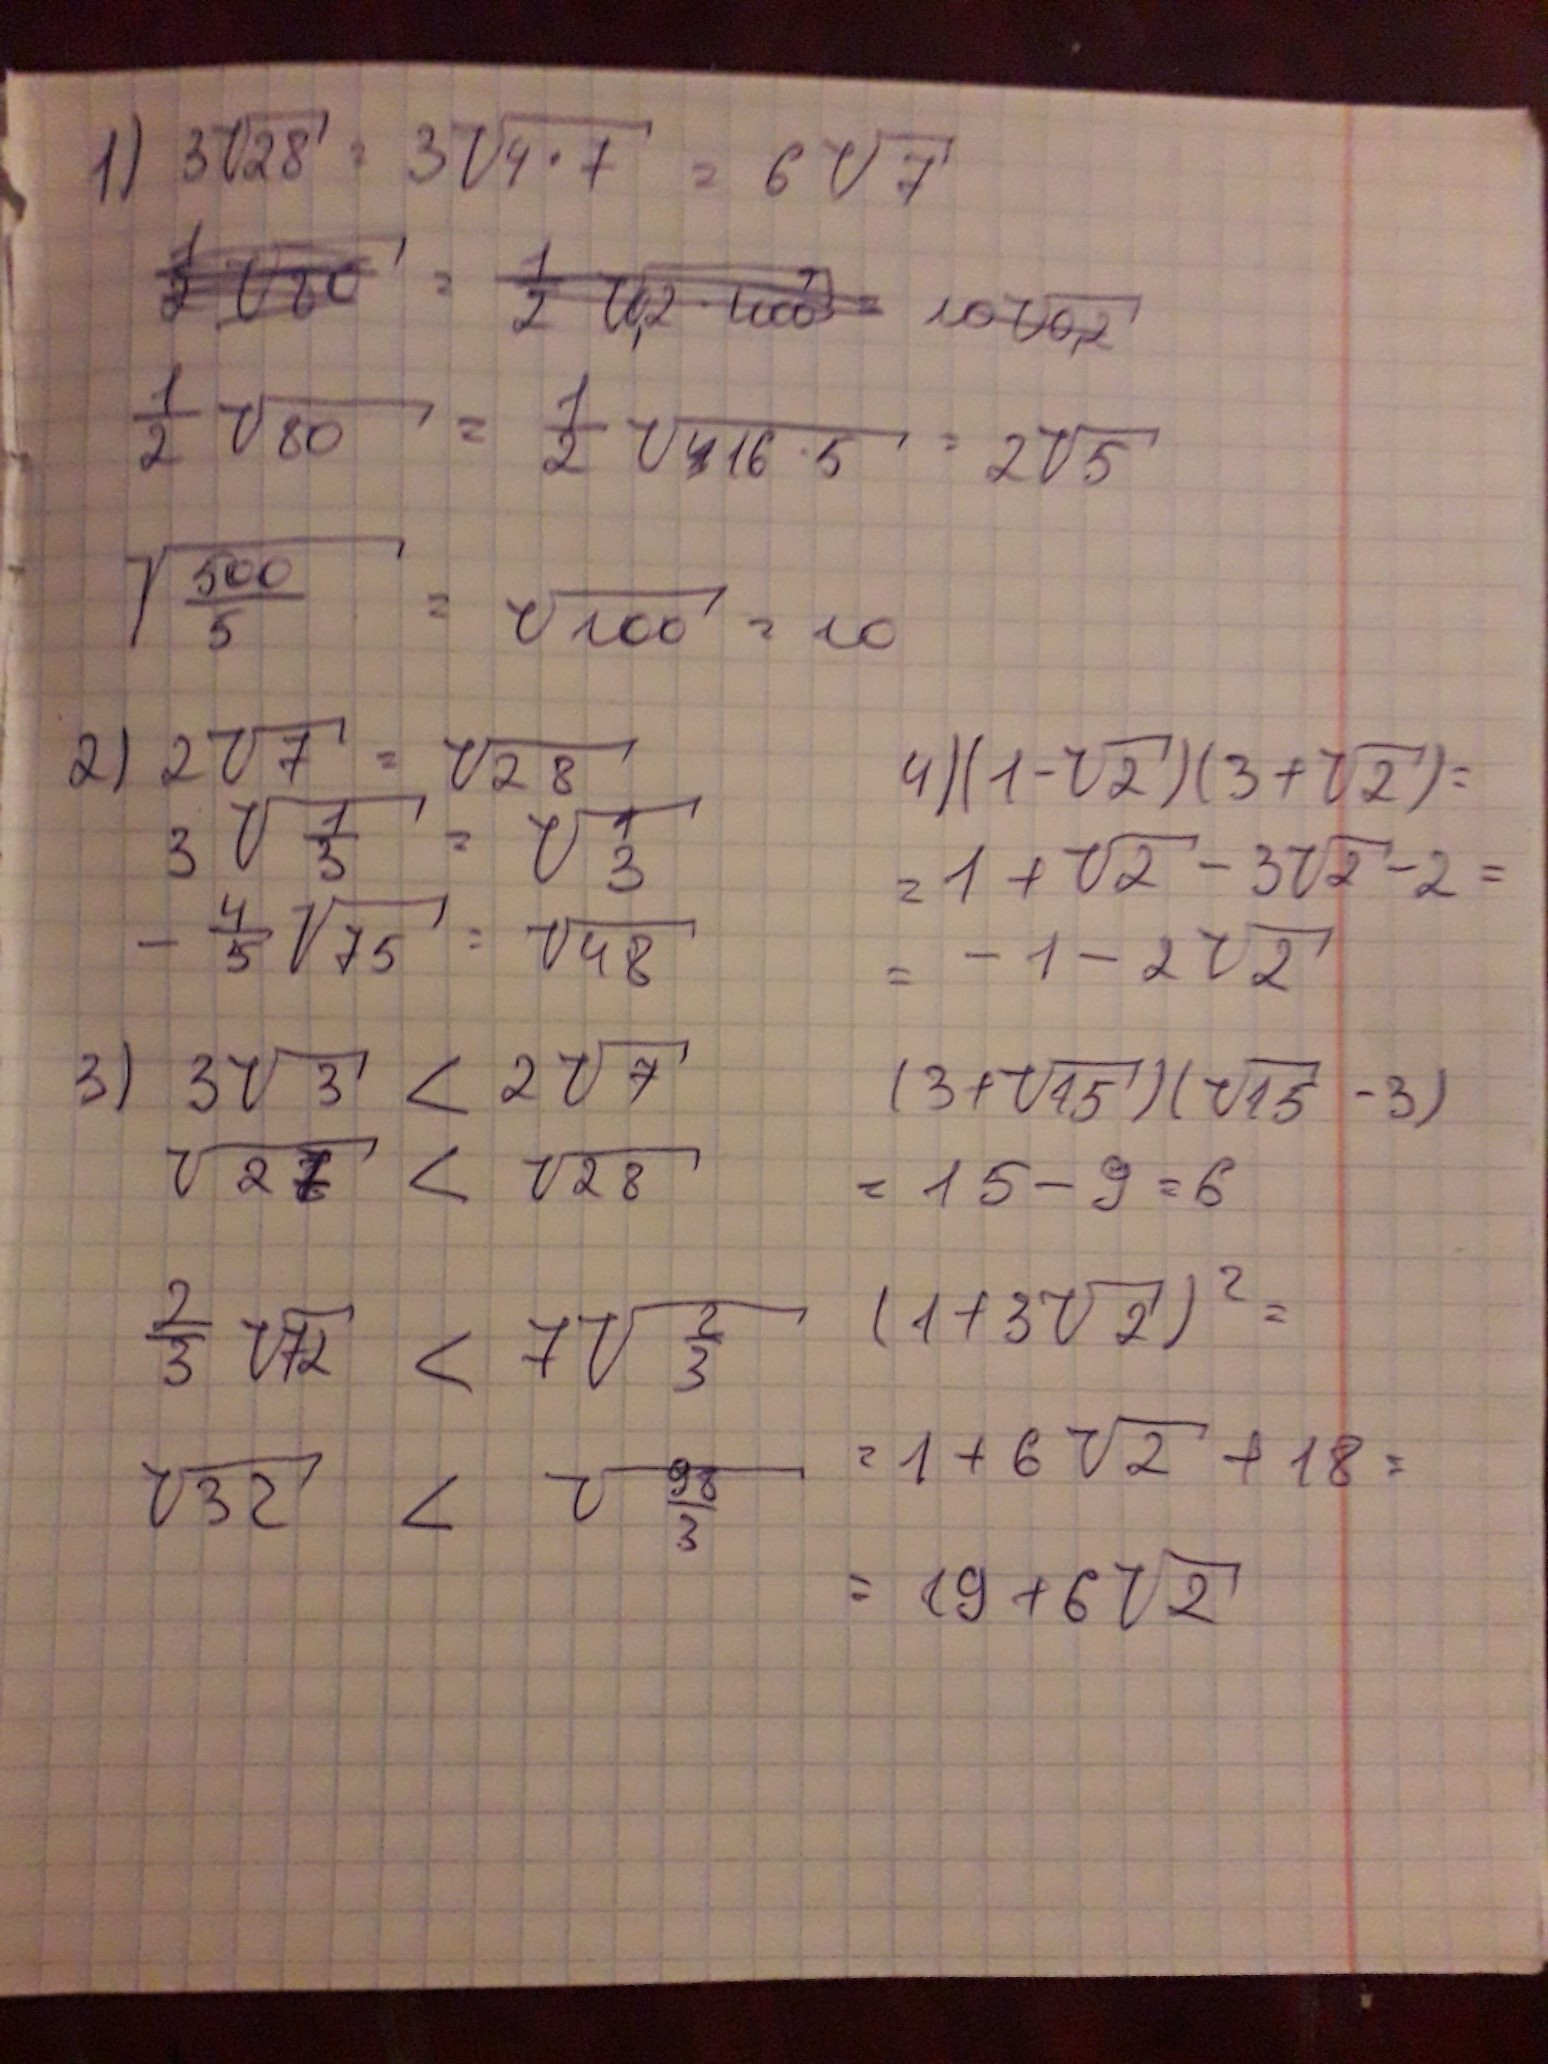 1) 3√28 = 3√4·7 = 6√7
1/2 √80 = 1/2 √0,2·400 = 10√0,2
1/2 √80 = 1/2 √16·5 = 2√5
√500/5 = √100 = 10
2) 2√7 = √28
3√1/3 = √1/3
- 4/5 √75 = √48
3) 3√3 < 2√7
√27 < √28
2/3 √72 < 7√2/3
√32 < √98/3
4) (1-√2)(3+√2) =
= 1 + √2 - 3√2 - 2 =
= -1 - 2√2
(3+√15)(√15 - 3)
= 15 - 9 = 6
(1+3√2)² =
= 1 + 6√2 + 18 =
= 19 + 6√2